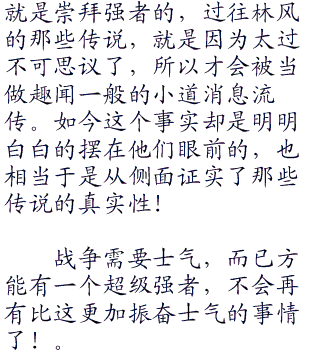 就是崇拜强者的，过往林风
的那些传说，就是因为太过
不可思议了，所以才会被当
做趣闻一般的小道消息流
传。如今这个事实却是明明
白白的摆在他们眼前的，也
相当于是从侧面证实了那些
传说的真实性！
战争需要士气，而已方
能有一个超级强者，不会再
有比这更加振奋士气的事情
了！。